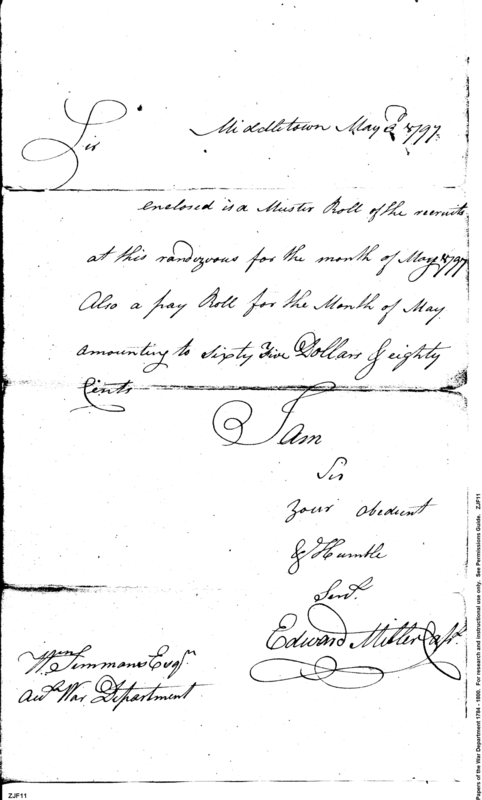 Middletown May 2d 1797
Sir
enclosed is a Muster Roll of the recruits
at this randizvous for the month of May 1797
Also a pay Roll for the Month of May
amounting to Sixty Five Dollars & eighty
Cents
I am
Sir
your obedient
& Humble
Servt.
Edward Miller Capt.
Wm. Simmons Esqr.
Acct. War Department
Papers of the War Department 1784 - 1800. For research and instructional use only. See Permissions Guide. ZJF11
ZJF11